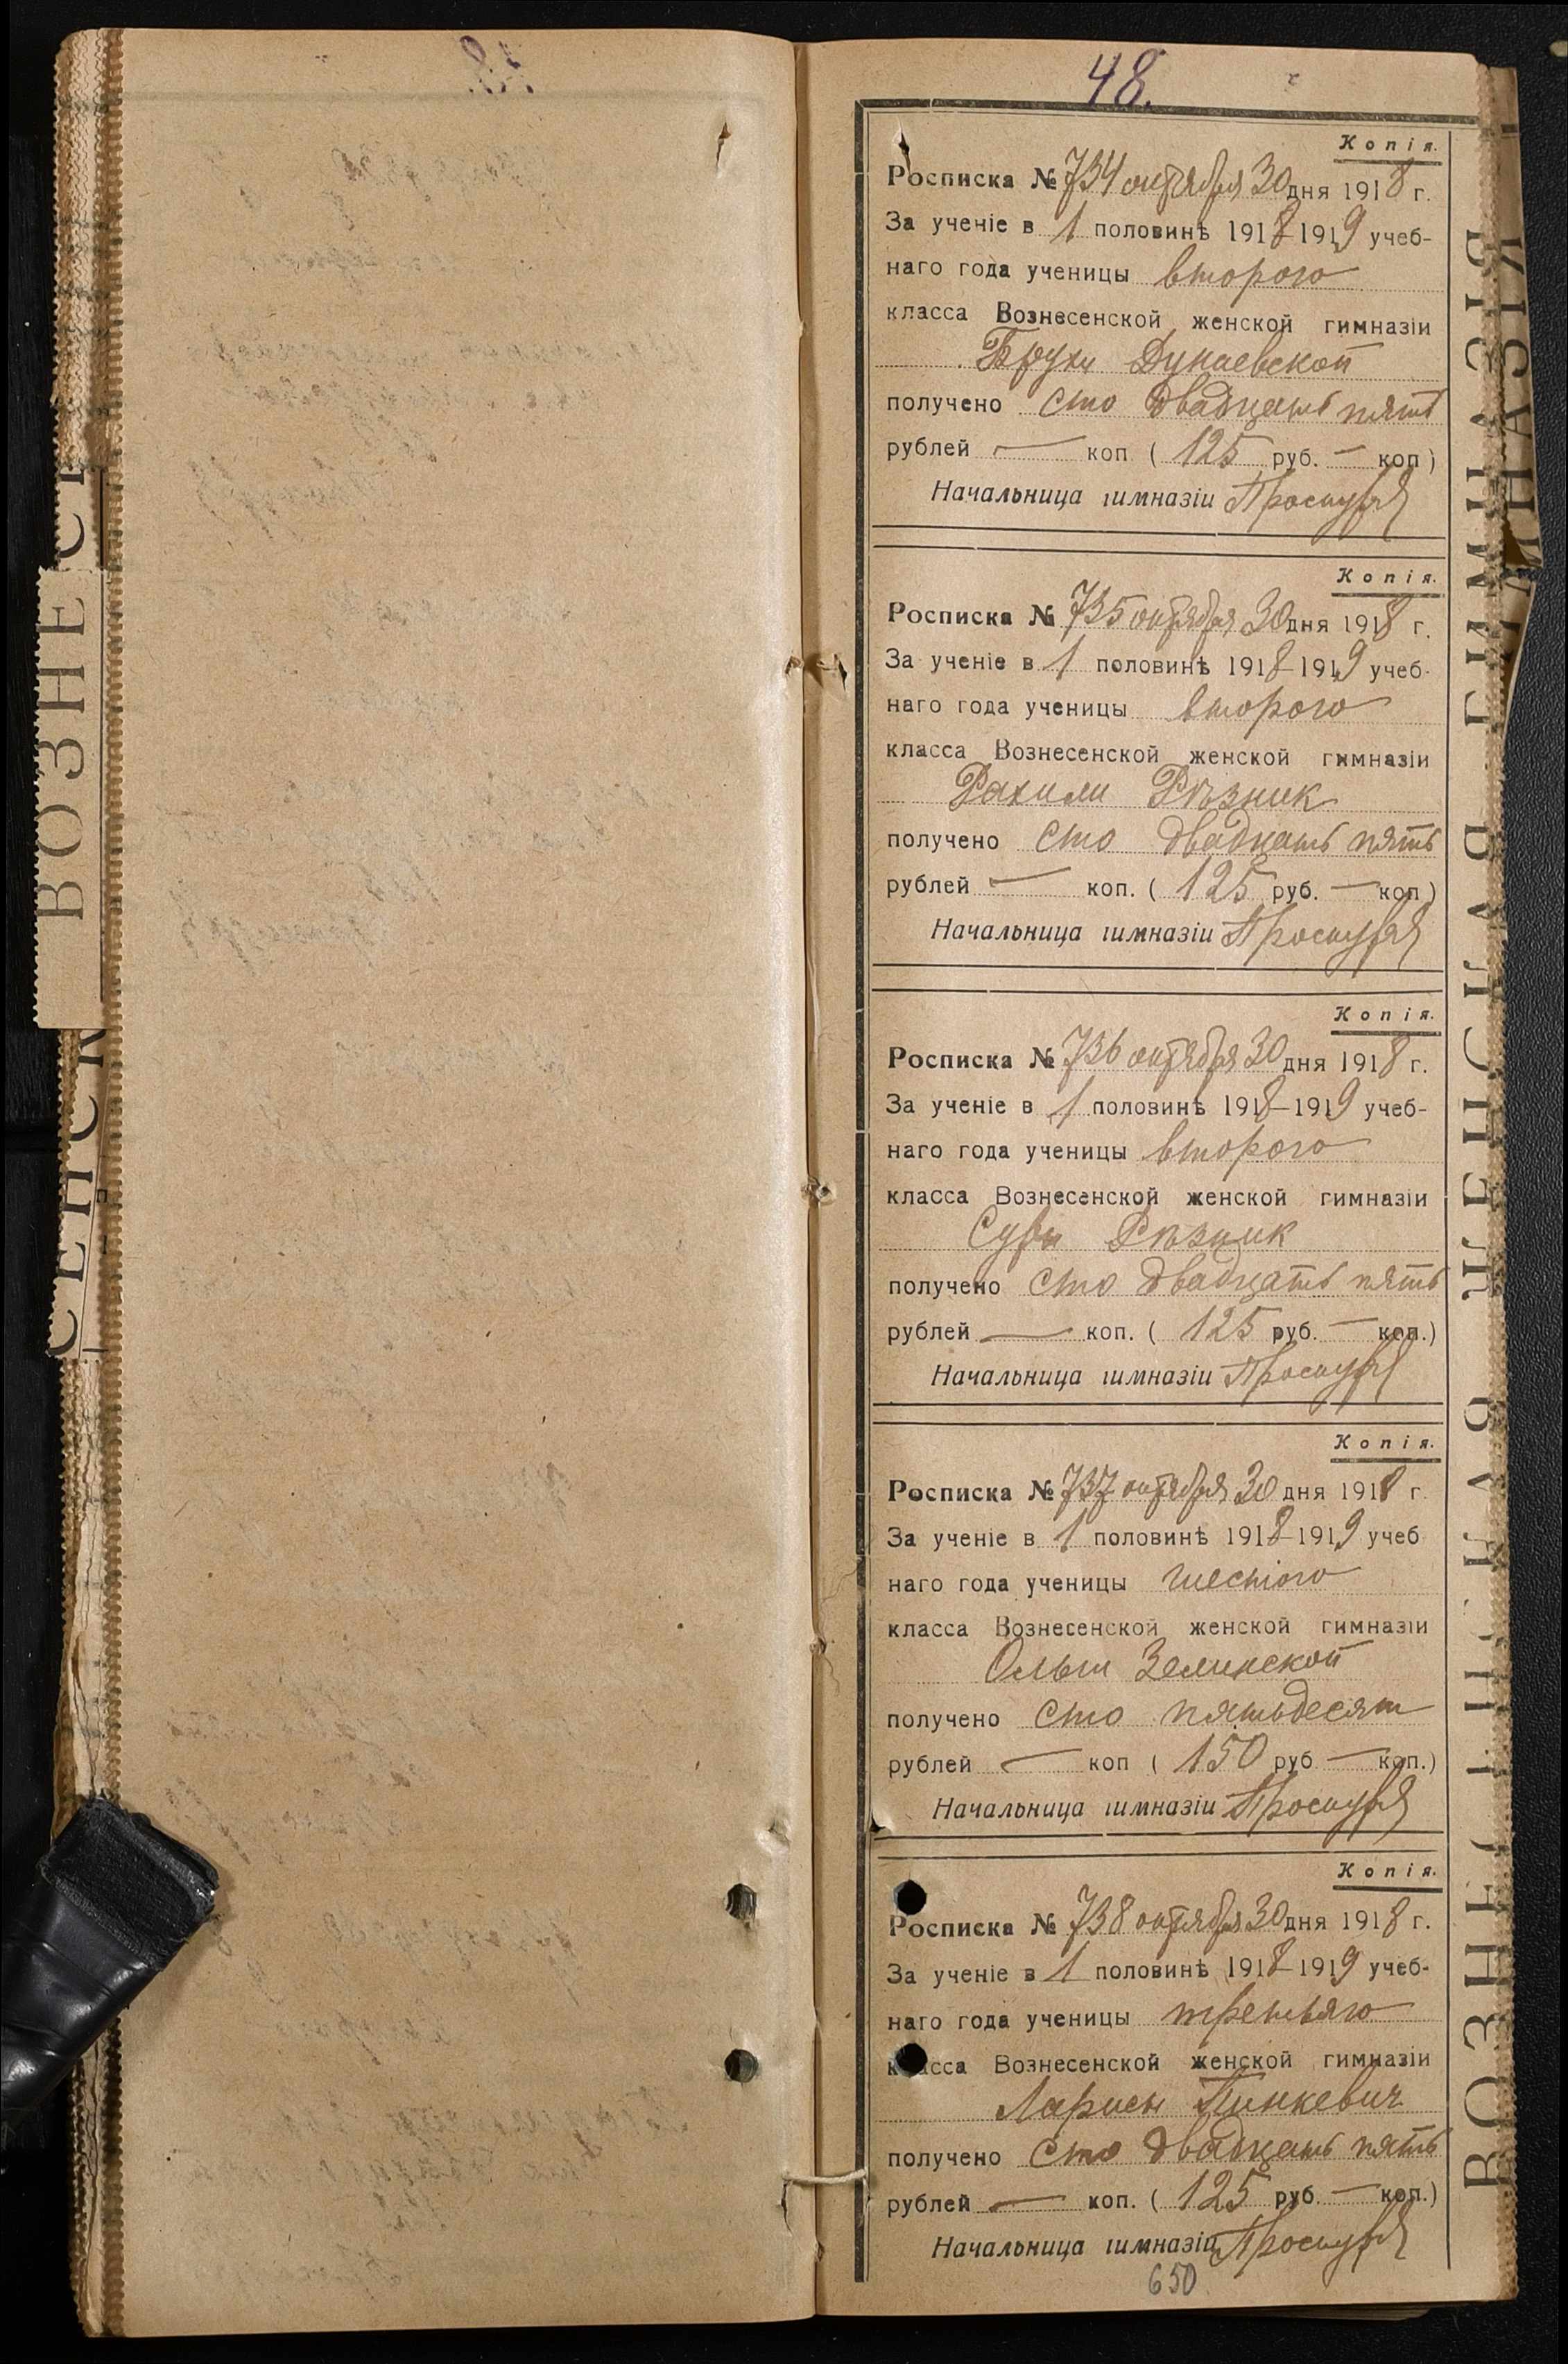 48.
Копія.
Росписка № 734 октября 30 дня 1918 г.
За ученіе в 1 половинѣ 1918-1919 учеб-
наго года ученицы второго
класса Вознесенской женской гимназіи
Брухи Дунаевской
получено сто двадцать пять
рублей — коп. ( 125 руб. — коп )
Начальница гимназіи
Копія.
Росписка № 735 октября 30 дня 1918 г.
За ученіе в 1 половинѣ 1918-1919 учеб-
наго года ученицы второго
класса Вознесенской женской гимназіи
Рахили Рѣзник
получено сто двадцать пять
рублей — коп. ( 125 руб. — коп )
Начальница гимназіи
Копія.
Росписка № 736 октября 30 дня 1918 г.
За ученіе в 1 половинѣ 1918-1919 учеб-
наго года ученицы второго
класса Вознесенской женской гимназіи
Суры Рѣзник
получено сто двадцать пять
рублей — коп. ( 125 руб. — коп.)
Начальница гимназіи
Копія.
Росписка № 737 октября 30 дня 1918 г.
За ученіе в 1 половинѣ 1918-1919 учеб
наго года ученицы шестого
класса Вознесенской женской гимназіи
Ольги Зелинской
получено сто пятьдесят
рублей — коп ( 150 руб — коп.)
Начальница гимназіи
Копія.
Росписка № 738 октября 30 дня 1918 г.
За ученіе в 1 половинѣ 1918-1919 учеб-
наго года ученицы третьяго
класса Вознесенской женской гимназіи
Ларисы Пинкевич
получено сто двадцать пять
рублей — коп. ( 125 руб. — коп.)
Начальница гимназіи
650
ВОЗНЕ